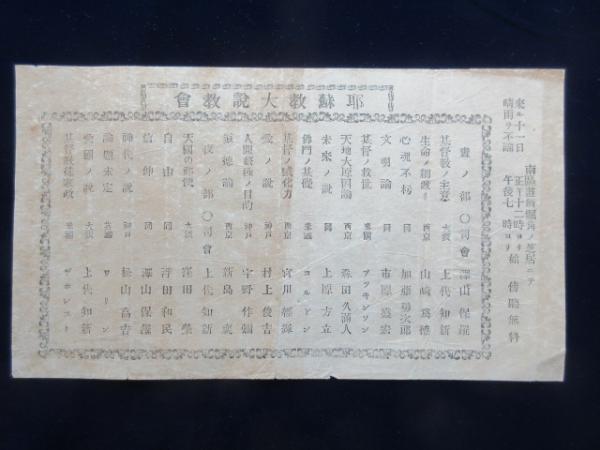 耶蘇教大説教會
來ル十一日
晴雨ヲ不論
南區 角ノ芝居ニテ
正十二時ヨリ
午後七時ヨリ
傍聽無料
晝ノ部○司會 澤山保羅
基督教ノ主意 大坂 上代知新
生命ノ 西京 山崎爲德
心魂不朽 同 加藤勇次郎
文明論 同 市原盛宏
基督ノ救世 米國 アツキンソン
天地大原因論 西京 森田久萬人
未來ノ説 同 上原方立
佛門ノ基優 米國 ゴルドン
基督ノ感化力 西京 宮川經輝
愛ノ説 神戸 村上俊吉
人間終極ノ目的 神戸 宇野作彌
道德論 西京 新島襄
夜ノ部○司會 上代知新
天國ノ郵便 大坂 窪田榮
自由 同 浮田和民
信仰 同 澤山保羅
神代ノ説 神戸 松山高吉
論題未定 英國 ワーレン
愛國ノ説 大坂 上代知新
基督教 米國 デホレスト